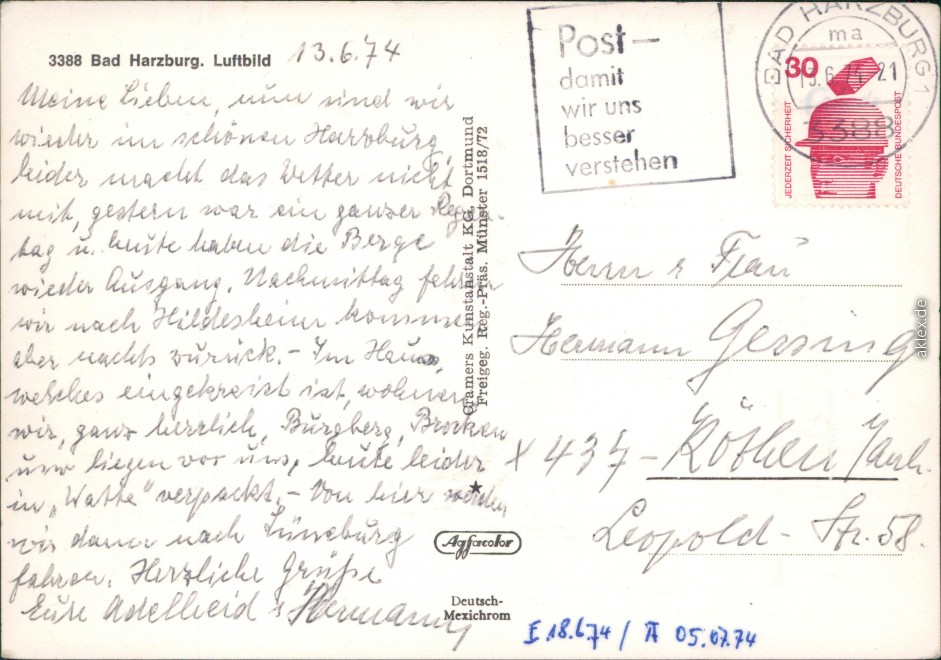 3388 Bad Harzburg. Luftbild 13.6.74
Meine Lieben, nun sind wir
wieder im schönen Harzburg,
leider macht das Wetter nicht
mit, gestern war ein ganzer Regen-
tag u. heute haben die Berge
wieder Ausgang. Nachmittag fahren
wir nach Hildesheim kommen
aber nachts zurück. – Im Haus,
welches eingekreist ist, wohnen
wir, ganz herrlich, Burgberg, Brocken
usw liegen vor uns, heute leider
in „Watte“ verpackt. – Von hier werden
wir dann nach Lüneburg
fahren. Herzliche Grüße
Eure Adelheid & Hermann
Cramers Kunstanstalt KG. Dortmund
Freigeg. Reg.-Präs. Münster 1518/72
Agfacolor
Deutsch-
Mexichrom
Post –
damit
wir uns
besser
verstehen
BAD HARZBURG 1
ma
13.6.74-21
3388
30
JEDERZEIT SICHERHEIT
DEUTSCHE BUNDESPOST
Herrn & Frau
Hermann Gessing
X 437 – Köthen/Anh.
Leopold-Str. 58.
E 18.6.74 / A 05.07.74
aklex.de